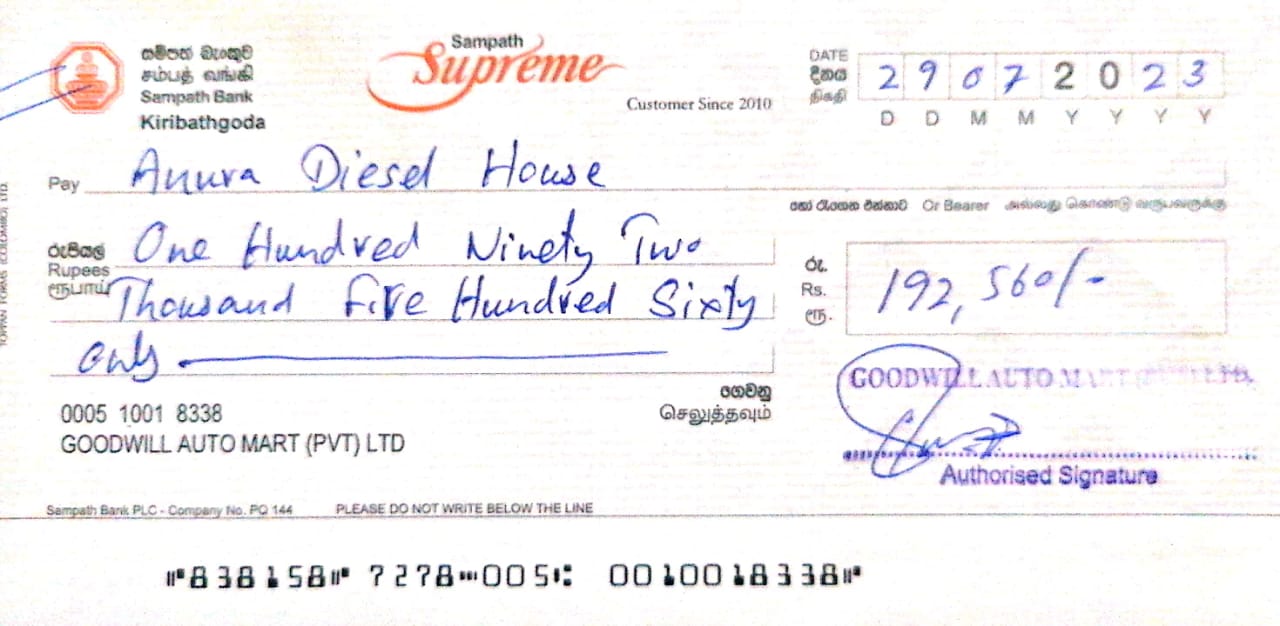 සම්පත් බැංකුව
சம்பத் வங்கி
Sampath Bank
Kiribathgoda
Sampath
Supreme
Customer Since 2010
DATE
දිනය
திகதி
2 9 0 7 2 0 2 3
D D M M Y Y Y Y
Pay Anura Diesel House
හෝ රැගෙන එන්නාට Or Bearer அல்லது கொண்டு வருபவருக்கு
රුපියල් Rupees ரூபாய் One Hundred Ninety Two
Thousand Five Hundred Sixty
only
රු.
Rs.
ரூ.
192,560/-
ගෙවනු
செலுத்தவும்
0005 1001 8338
GOODWILL AUTO MART (PVT) LTD
GOODWILL AUTO MART LTD.
Authorised Signature
Sampath Bank PLC - Company No. PQ 144 PLEASE DO NOT WRITE BELOW THE LINE
⑈838158⑈ 7278⑉005⑆ 0010018338⑈
TOPPAN FORMS (COLOMBO) LTD.